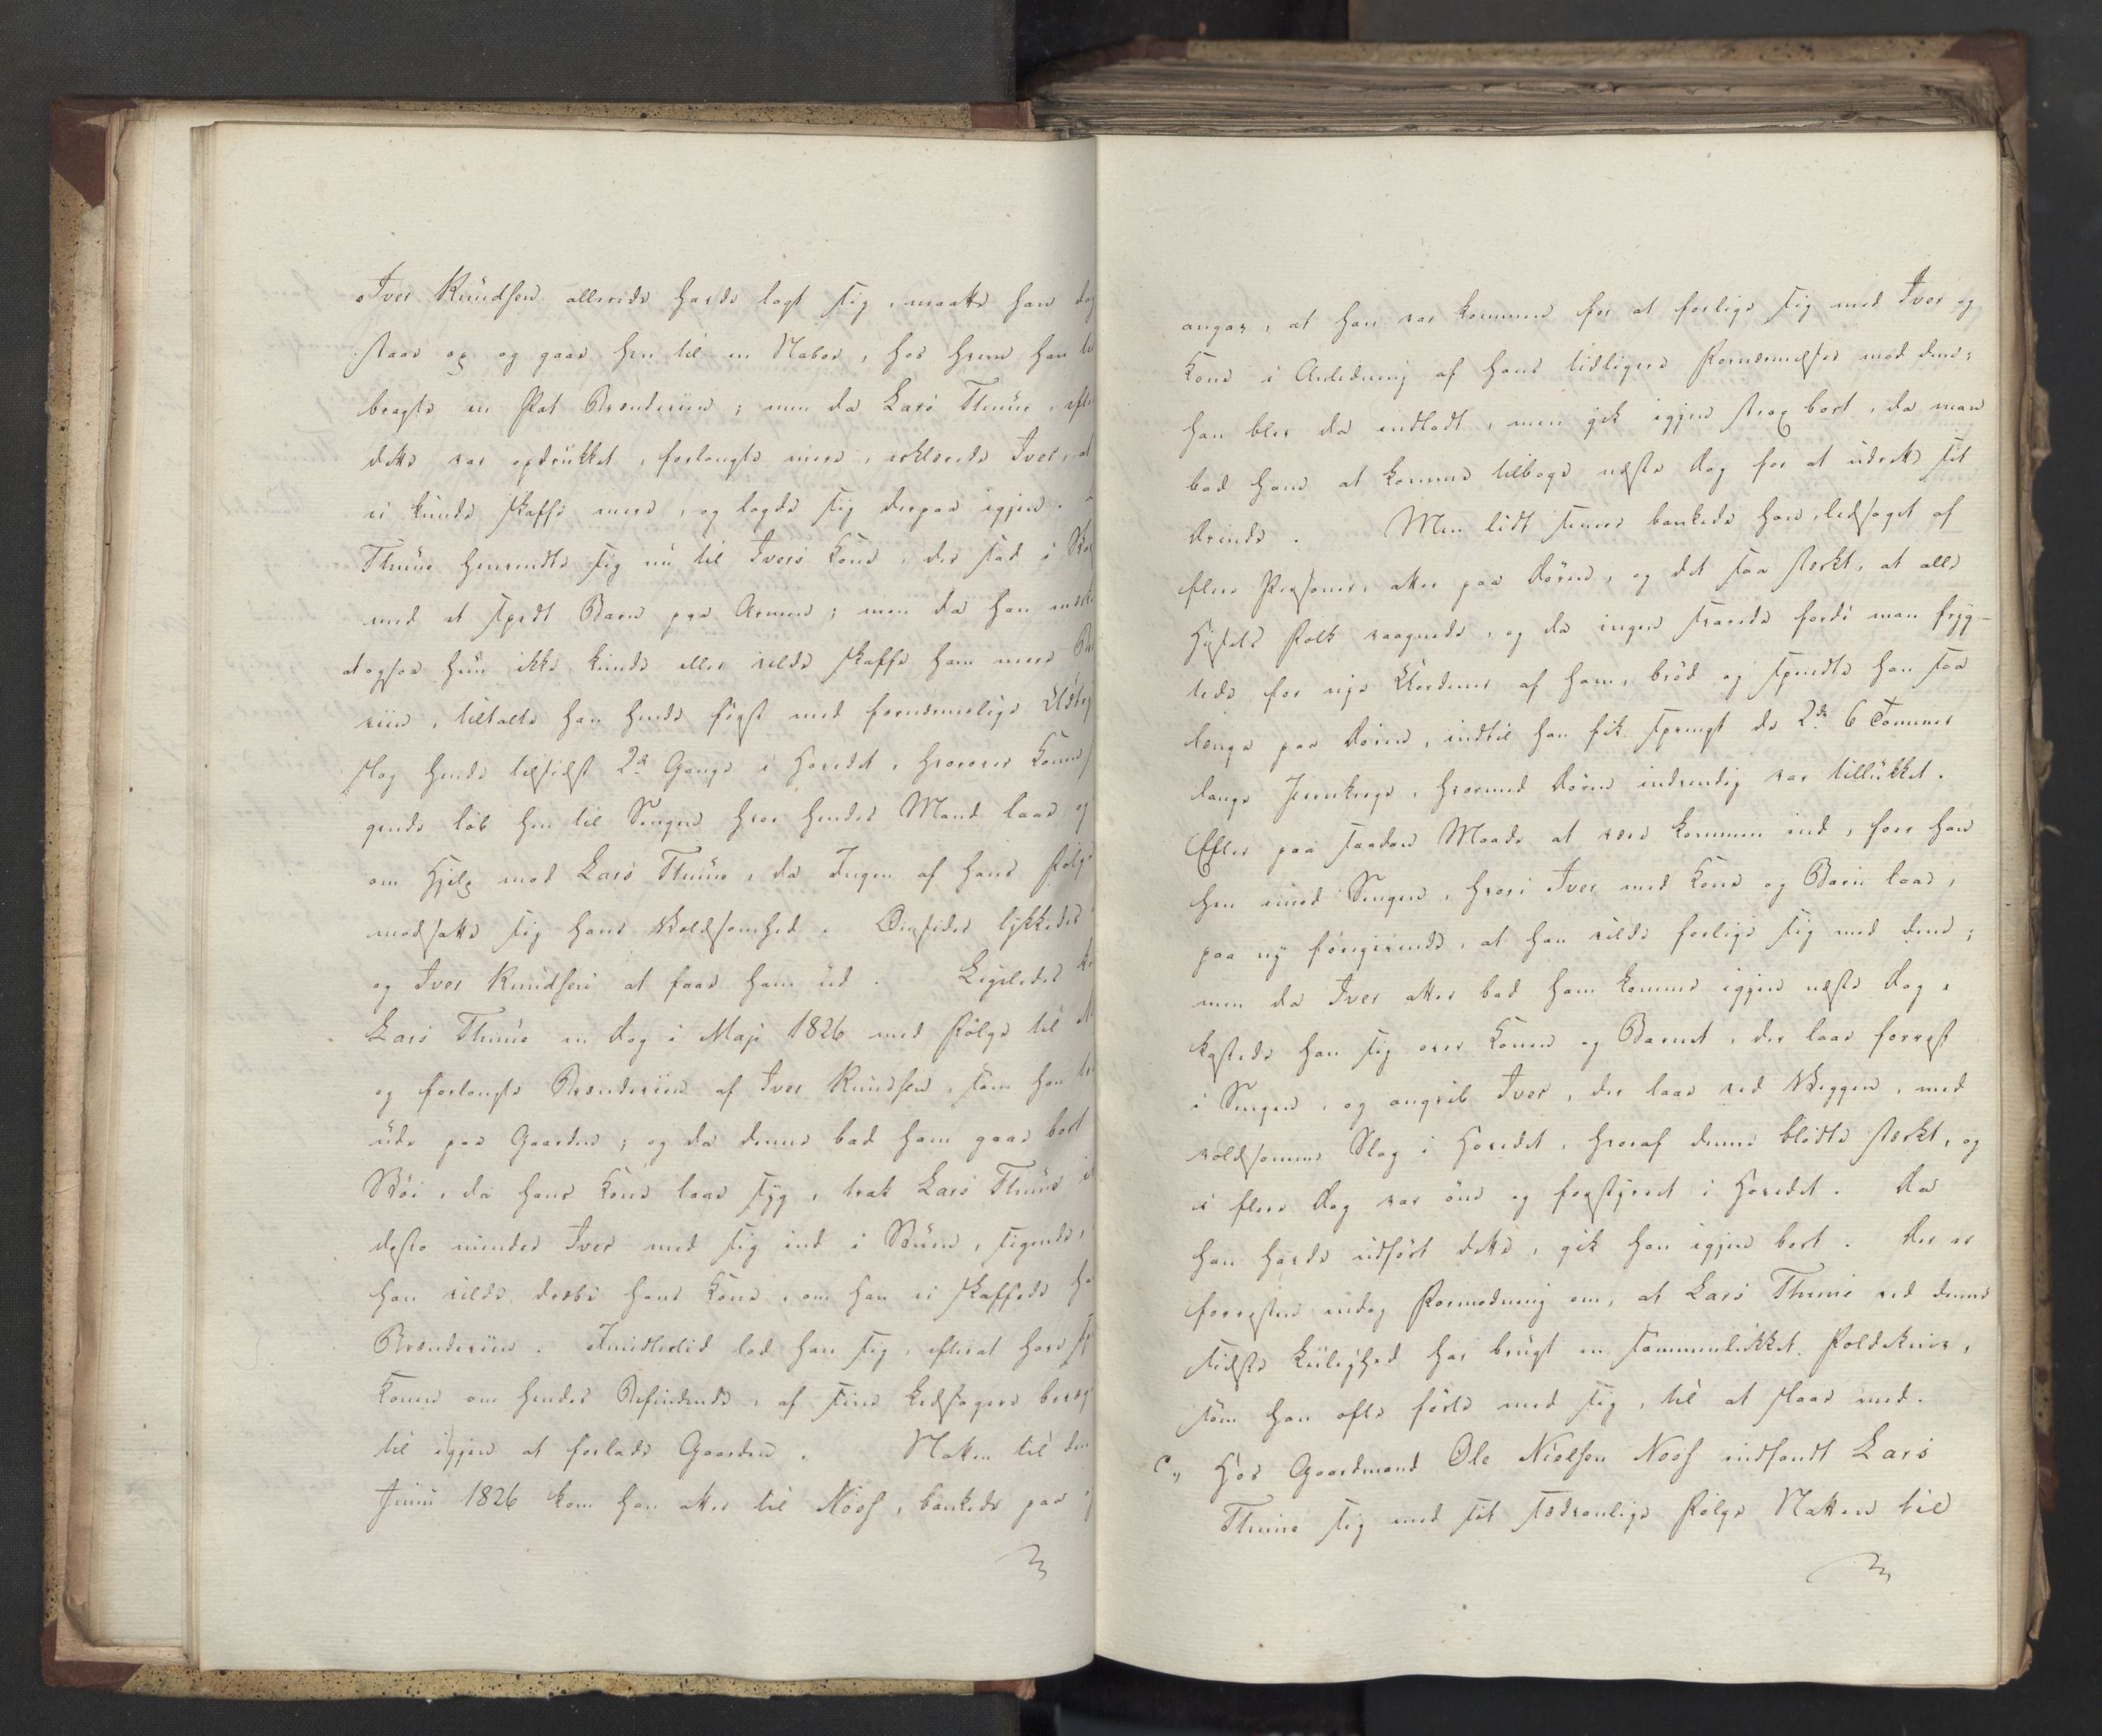 Iver Knudsen allerede havde lagt sig, maatte han dog
staae op og gaae hen til en Naboe, hos hvem han til
bragte en Pot Brændeviin; men da Lars Thune, efter
dette var opdrukket, forlangte mere, erklærede Iver, at
ei kunde skaffe mere, og lagde sig derpaa igjen.
Thune henvendte sig nu til Ivers Kone, der sad i
med et spædt Barn paa Armen; men da han mærk
at ogsaa hun ikke kunde eller vilde skaffe ham mere Bræn
viin, tiltalte han hende først med fornærmelige Udtryk
slog hende tilsidst 2de Gange i Hovedet, hvorover Konen
gende løb hen til Sengen hvor hendes Mand laae og
om Hjelp mod Lars Thune, da Ingen af hans Følge
modsatte sig hans Voldsomhed. Omsider lykkedes
og Iver Knudsen at faae ham ud. Ligeledes kom
Lars Thune en Dag i Maji 1826 med Følge til
og forlangte Brændeviin af Iver Knudsen, som han
ude paa Gaarden; og da denne bad ham gaae bort
Støi, da hans Kone laae syg, trak Lars Thune
desto mindre Iver med sig ind i Stuen, sigende,
han vilde dræbe hans Kone, om han ei skaffede ha
Brændeviin. Imidlertid lod han sig, efterat have
Konen om hendes Befindende, af sine Ledsagere bevæge
til igjen at forlade Gaarden. Natten til den
Junii 1826 kom han atter til Noss, bankede paa
angav, at han var kommen for at forlige sig med Iver og
Kone i Anledning af hans tidligere Fornærmelser mod dem;
han blev da indladt, men gik igjen strax bort, da man
bad ham at komme tilbage næste Dag for at udrette sit
Ærinde. Men lidt senere bankede han, ledsaget af
flere Personer, atter paa Døren, og det saa stærkt, at alle
Husets Folk vaagnede, og da ingen svarede fordi man fryg-
tede for nye Uordener af ham, brød og spændte han saa
længe paa Døren, indtil han fik sprængt de 2de 6 Tommer
lange Jernkroge, hvormed Døren indvendig var tillukket.
Efter paa saadan Maade at være kommen ind, foer han
hen imod Sengen, hvori Iver med Kone og Barn laae,
paa ny foregivende, at han vilde forlige sig med dem;
men da Iver atter bad ham komme igjen næste Dag,
kastede han sig over Konen og Barnet, der laae forrest
i Sengen, og angreb Iver, der laae ved Væggen, med
voldsomme Slag i Hovedet, hvoraf denne blødte stærkt, og
i flere Dage var øm og forstyrret i Hovedet. Da
han havde udført dette, gik han igjen bort. Der er
forresten endog Formodning om, at Lars Thune ved denne
sidste Leilighed har brugt en sammenlukket Foldekniv,
som han ofte førte med sig, til at slaae med.
c,, Hos Gaardmand Ole Nielsen Noss indfandt Lars
Thune sig med sit sædvanlige Følge Natten til